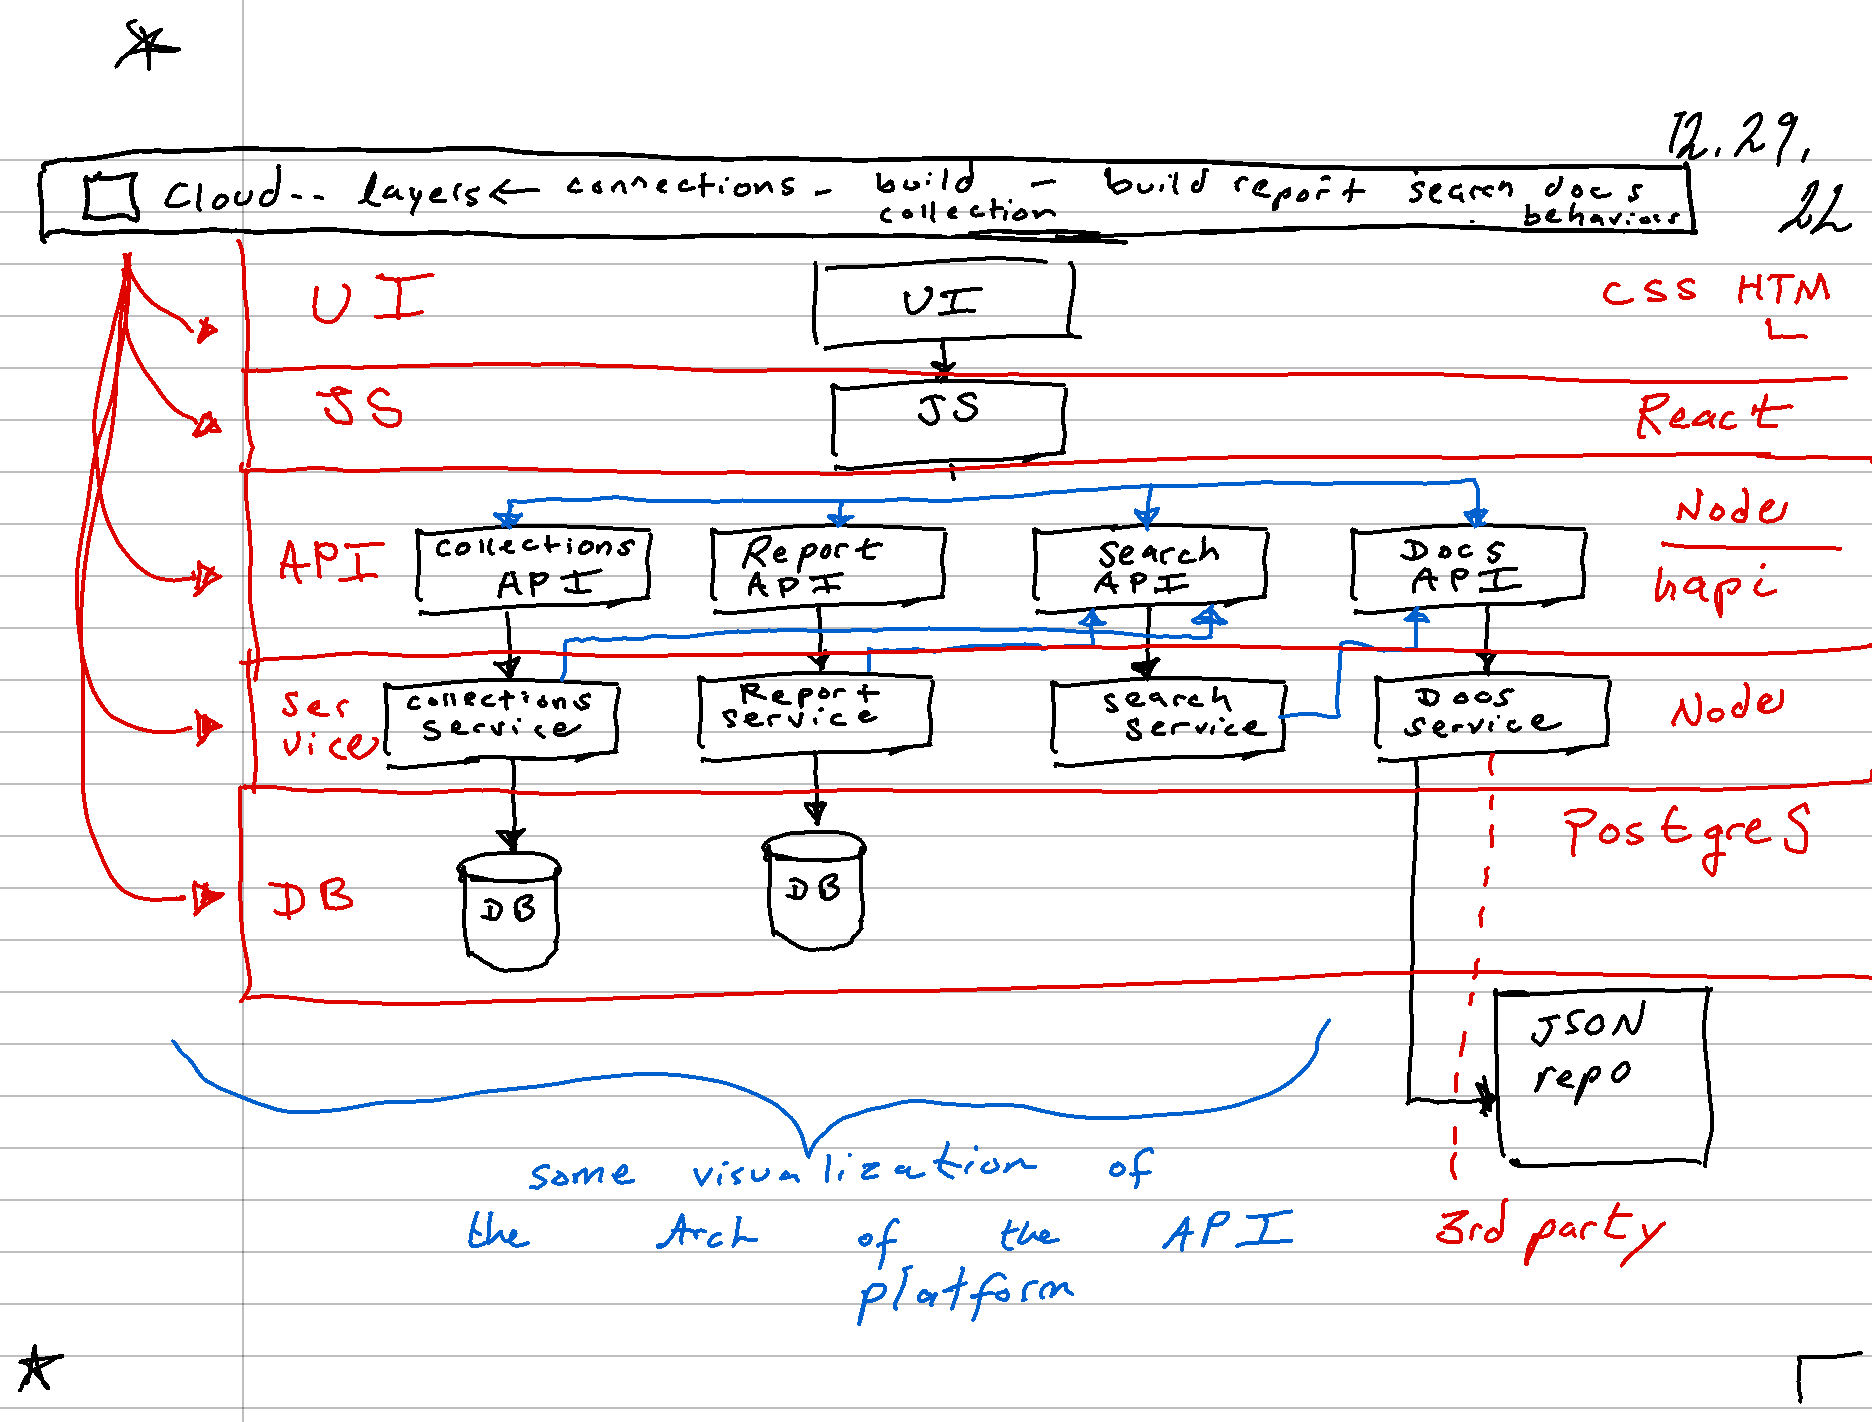 12.29.
22
Cloud-- layers ← connections - build collection - build report search docs behaviors
UI
UI
CSS HTM
L
JS
JS
React
API
Collections
API
Report
API
Search
API
Docs
API
Node
hapi
Ser
vice
Collections
Service
Report
Service
Search
Service
Docs
Service
Node
DB
DB
DB
Postgres
JSON
repo
some visualization of
the Arch of the API
platform
3rd party